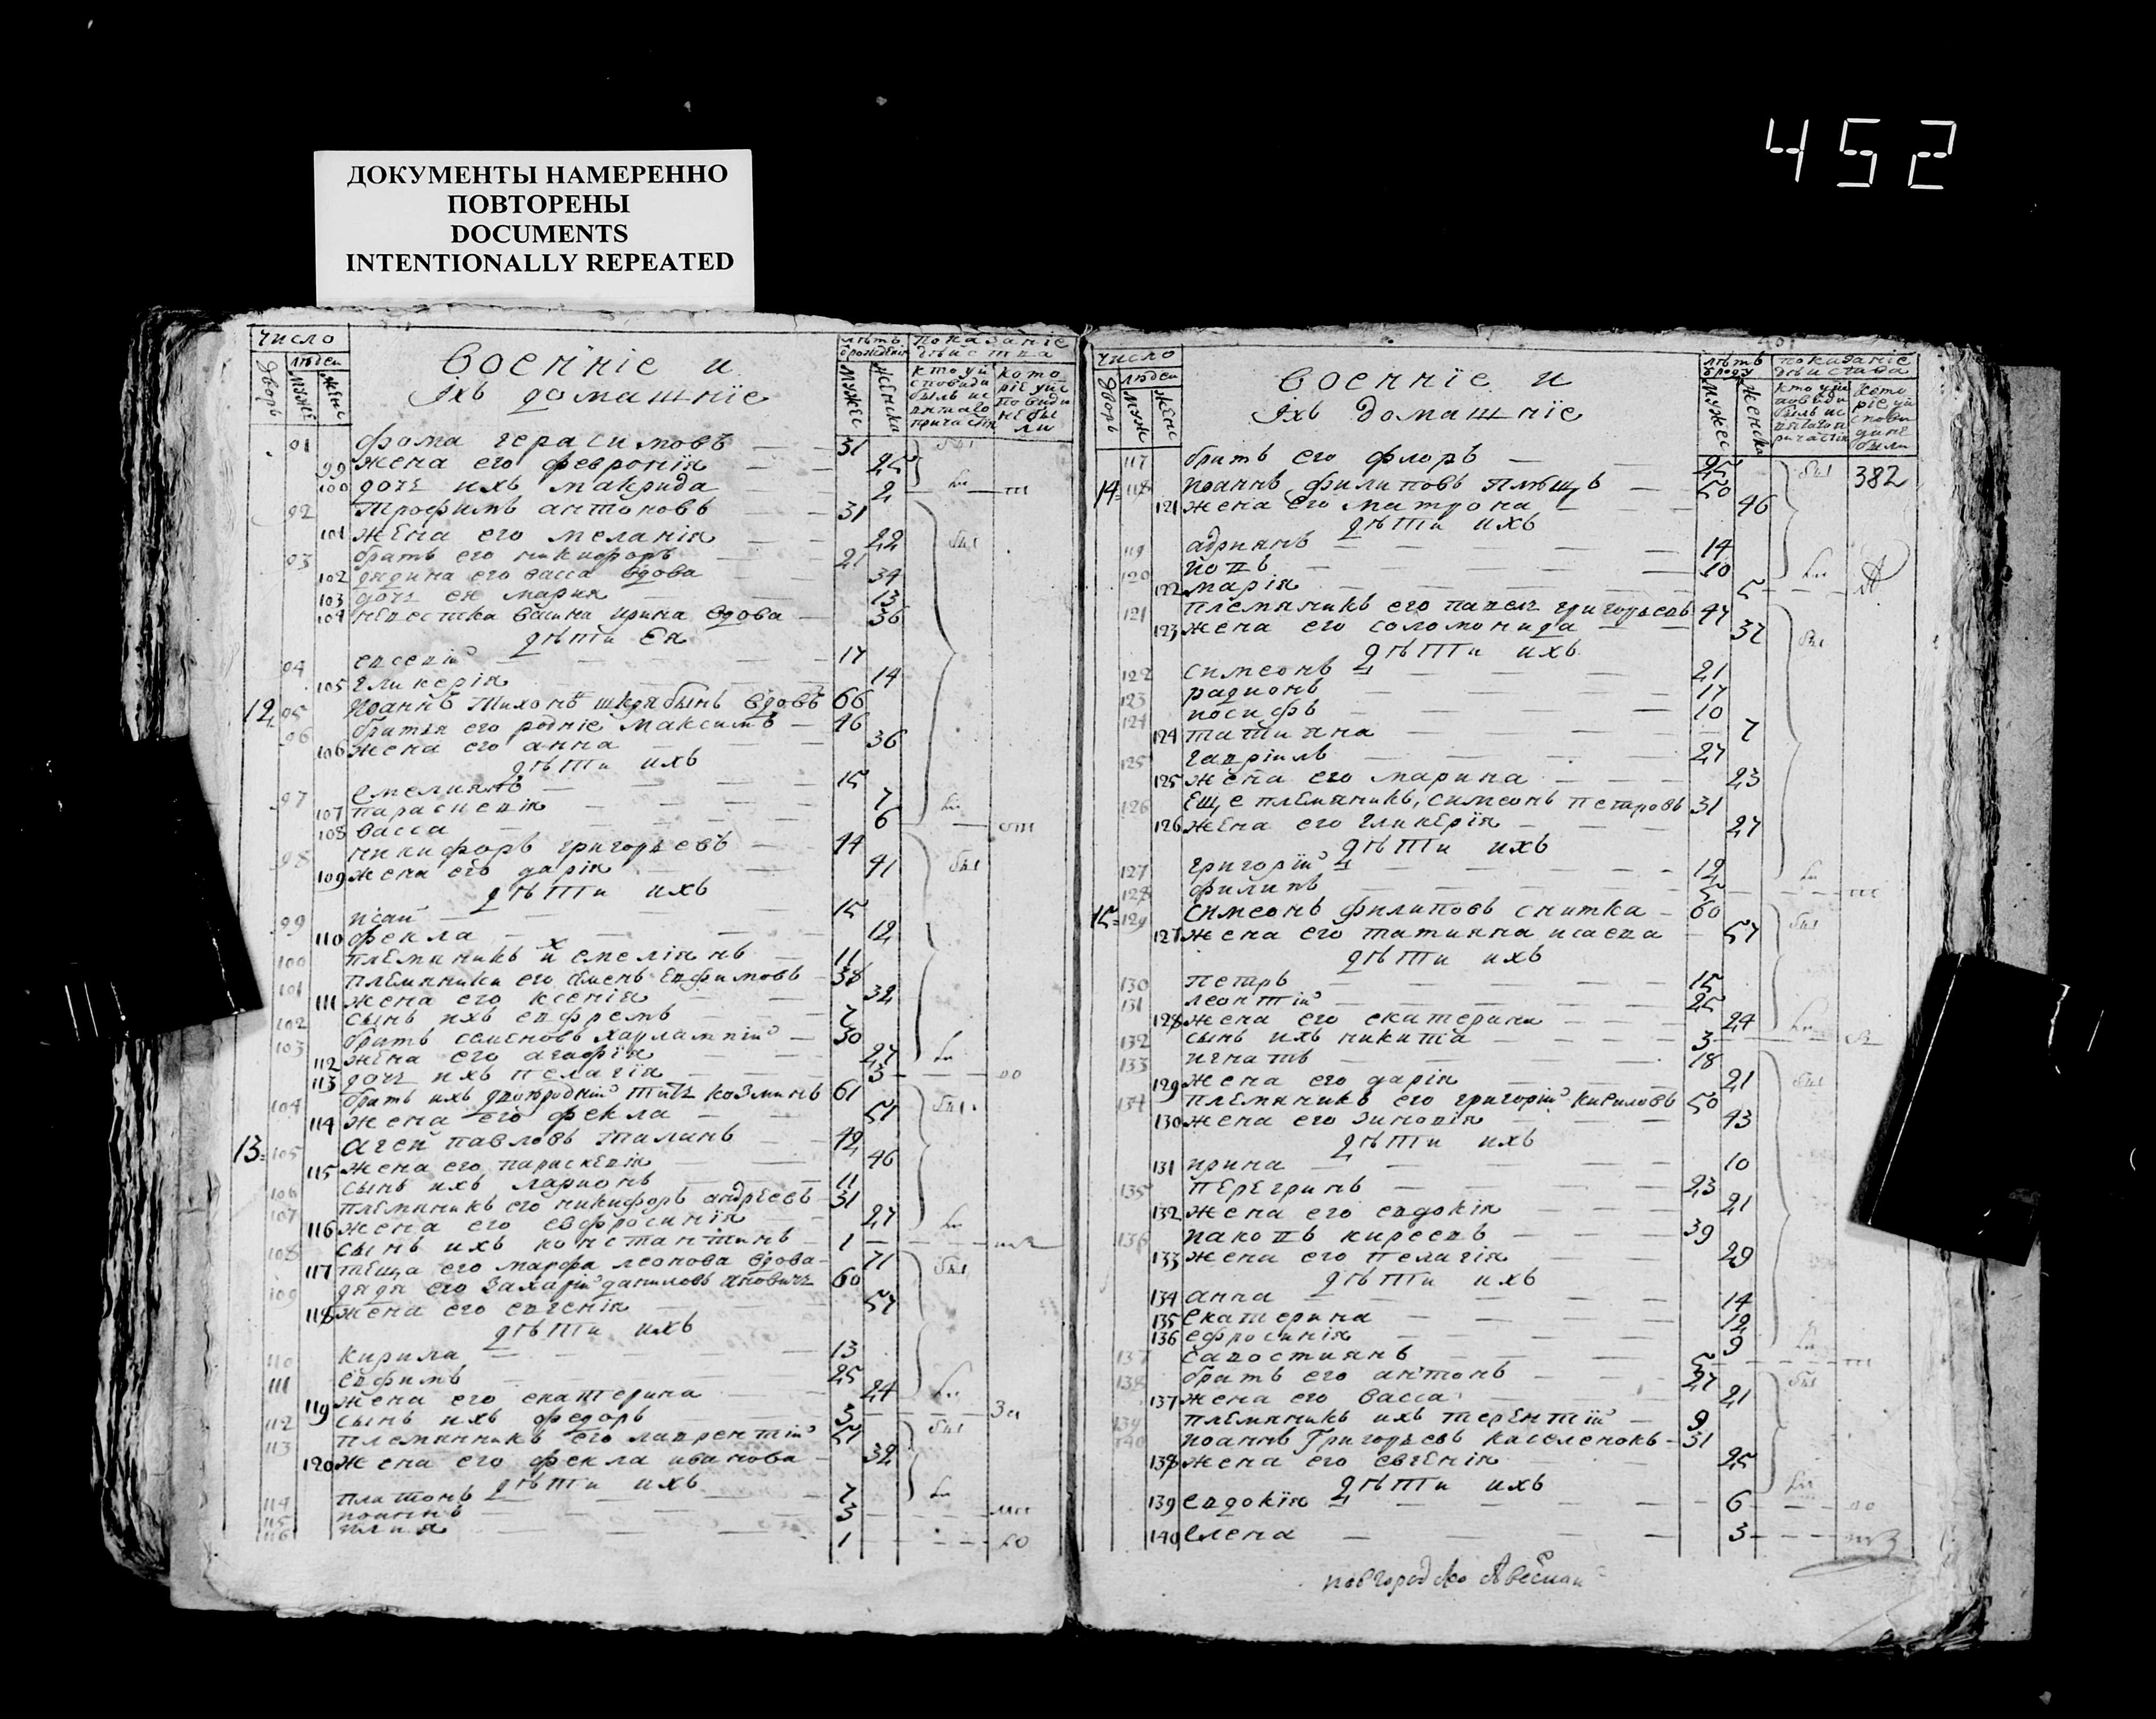 452
ДОКУМЕНТЫ НАМЕРЕННО
ПОВТОРЕНЫ
DOCUMENTS
INTENTIONALLY REPEATED
число
людеи
дворъ
муже
женс
Военніе и
Іхъ домашніе
лѣтъ
показаніе
мужес
женска
91 фома герасимовъ 31
99 жена его февронія 25
100 дочь ихъ макрида 2
92 трофимъ антоновъ 31
101 жена его меланія 22
93 братъ его никифоръ 21
102 дядина его васса вдова 34
103 дочь ея мария 13
104 невестка васина ирина вдова 36
дѣти ея
94 евсевій 17
105 гликерія 14
12 95 иоаннъ тихонъ вдовъ 66
96 братья его родніе максимъ 46
106 жена его анна 36
дѣти ихъ
97 емелиянъ 15
107 парасцевія 7
108 васса 6
98 никифоръ григорьевъ 44
109 жена его дарія 41
дѣти ихъ
99 исаи 15
110 фекла 12
100 племянникъ их емеліянъ 11
101 племянники его семенъ евфимовъ 38
111 жена его ксенія 32
102 сынъ ихъ ефремъ 7
103 братъ семеновъ харлампій 30
112 жена его агафія 27
113 дочь ихъ пелагія 3
104 братъ ихъ двоюродній титъ козминъ 61
114 жена его фекла 51
13 105 агеи павловъ талинъ 42
115 жена его параскевія 46
106 сынъ ихъ ларионъ 11
107 племянникъ его никифоръ андреевъ 31
116 жена его евфросинія 27
108 сынъ ихъ константинъ 1
117 теща его марфа леонова вдова 71
109 дядя его захарій даниловъ 60
118 жена его евгенія 57
дѣти ихъ
110 кирила 13
111 евфимъ 25
119 жена его екатерина 24
112 сынъ ихъ федоръ 3
113 племянникъ его лаврентій 51
120 жена его фекла иванова 32
дѣти ихъ
114 платонъ 7
115 иоаннъ 3
116 илия 1
число
людеи
дворъ
муж
женс
Военніе и
Іхъ домашніе
лѣтъ
показаніе
мужес
женска
117 братъ его флоръ 25
14 118 иоаннъ филиповъ плѣщъ 50
382
121 жена его матрона 46
дѣти ихъ
119 адриянъ 14
120 иовъ 10
122 марія 5
121 племянникъ его павелъ григорьевъ 47
123 жена его соломонида 37
дѣти ихъ
122 симеонъ 21
123 радионъ 17
124 иосифъ 10
124 татияна 7
125 гавріилъ 27
125 жена его марина 23
126 еще племянникъ, симеонъ петровъ 31
126 жена его гликерія 27
дѣти ихъ
127 григорій 12
128 филипъ 5
15 129 симеонъ филиповъ снитка 60
127 жена его татияна исаева 57
дѣти ихъ
130 петаръ 15
131 леонтій 25
128 жена его екатерина 24
132 сынъ ихъ никита 3
133 игнатъ 18
129 жена его дарія 21
134 племяникъ его григорій кириловъ 50
130 жена его зиновія 43
дѣти ихъ
131 ирина 10
135 перегринъ 23
132 жена его евдокія 21
136 иаковъ киреевъ 39
133 жена его пелагія 29
дѣти ихъ
134 анна 14
135 екатерина 12
136 ефросинія 9
137 савостиянъ 5
138 братъ его антонъ 27
137 жена его васса 21
139 племяникъ ихъ терентій 9
140 иоаннъ григорьевъ каселенокъ 31
138 жена его евгенія 25
дѣти ихъ
139 евдокія 6
140 елена 3